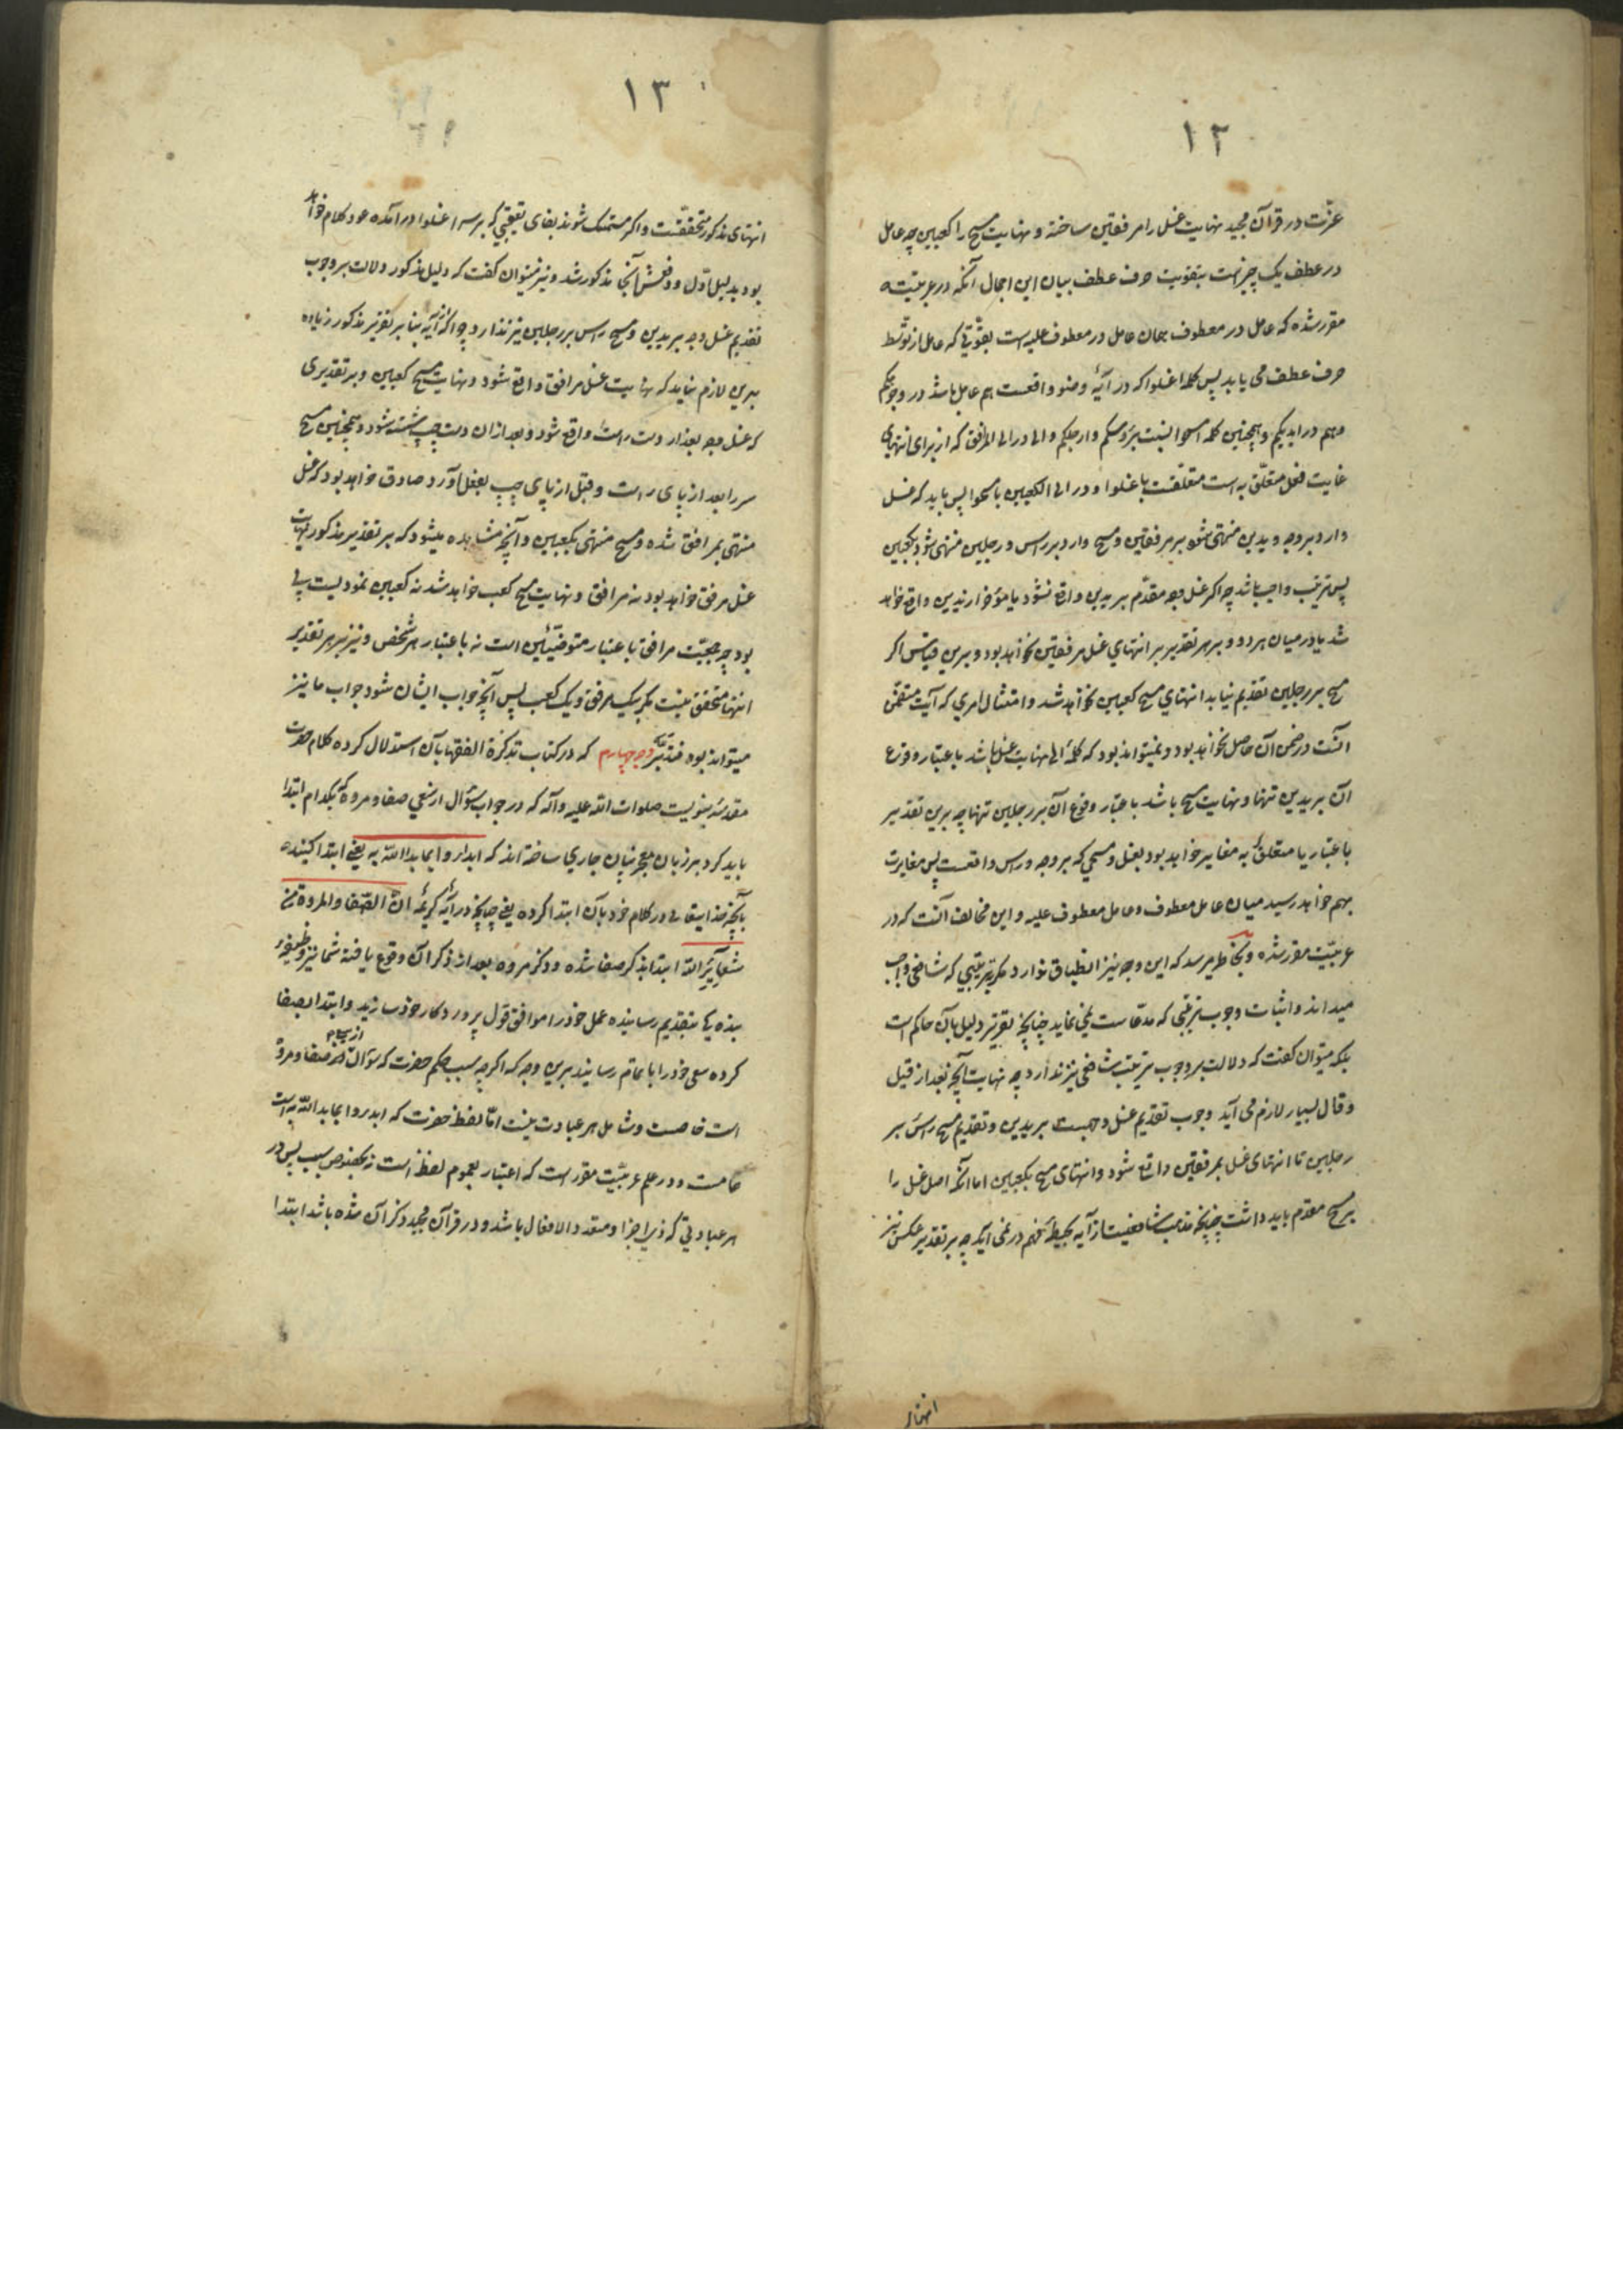 ۱۲
عزّت در قرآن مجید نهایت غسل را مرفقین ساخته و نهایت مسح را کعبین چه عامل
در عطف یک چیز است بتقویت حرف عطف بیان این اجمال آنکه در عربیت
مقرر شده که عامل در معطوف همان عامل در معطوف علیه است بقوّتی که عامل از توسّط
حرف عطف می یابد پس کلمه اغسلوا که در آیهٔ وضو واقعست هم عامل باشد در وجوهکم
و هم در ایدیکم و همچنین کلمه امسحوا نسبت برؤسکم و ارجلکم و الی در الی المرافق که از برای انتهای
غایت فعل متعلّق به است متعلّقست باغسلوا و در الی الکعبین بامسحوا پس باید که غسل
وارد بر وجه و یدین منتهی شود بر مرفقین و مسح وارد بر راس و رجلین منتهی شود بکعبین
پس ترتیب واجب باشد چه اکر غسل وجه مقدّم بر یدین واقع نشود یا مؤخر از یدین واقع خواهد
شد یا در میان هر دو و بر هر تقدیر بر انتهای غسل مرفقین نخواهد بود و برین قیاس اکر
مسح بر رجلین تقدیم نیابد انتهای مسح کعبین نخواهد شد و امتثال امری که آیت متضمّن
آنست در ضمن آن حاصل نخواهد بود و نمیتواند بود که کلمهٔ الی نهایت غسل باشد باعتبار وقوع
آن بر یدین تنها و نهایت مسح باشد باعتبار وقوع آن بر رجلین تنها چه برین تقدیر
باعتبار یا متعلّق به مغایر خواهد بود بغسل و مسحی که بر وجه و راس واقعست پس مغایرت
بهم خواهد رسید میان عامل معطوف و عامل معطوف علیه و این مخالف آنست که در
عربیّت مقرر شده و بخاطر میرسد که این وجه نیز انطباق ندارد مکر بترتیبی که شافعی واجب
میداند و اثبات وجوب ترتیبی که مدّعاست نمی نماید چنانچه تقریر دلیل بآن حاکم است
بلکه میتوان کفت که دلالت بر وجوب ترتیب شافعی نیز ندارد چه نهایت آنچه بعد از قیل
و قال بسیار لازم می آید وجوب تقدیم غسل وجهست بر یدین و تقدیم مسح راس بر
رجلین تا انتهای غسل بمرفقین واقع شود و انتهای مسح بکعبین اما آنکه اصل غسل را
بر مسح مقدم باید داشت چنانچه مذهب شافعیست از آیه بحیطهٔ فهم در نمی آید چه بر تقدیر عکس نیز
انتهای
۱۳
انتهای مذکور متحققست و اکر متمسک شوند بفای تعقیبی که بر سر اغسلوا در آمده عود کلام خواهد
بود بدلیل اوّل و دفعش آنجا مذکور شد و نیز میتوان کفت که دلیل مذکور دلالت بر وجوب
تقدیم غسل وجه بر یدین و مسح راس بر رجلین نیز ندارد چه اکر آیه بنابر تقریر مذکور زیاده
برین لازم نیاید که نهایت غسل مرافق واقع شود و نهایت مسح کعبین و بر تقدیری
که غسل وجه بعد از دست راست واقع شود و بعد از ان دست چپ شسته شود و همچنین مسح
سر را بعد از پای راست و قبل از پای چپ بفعل آورد صادق خواهد بود که غسل
منتهی بمرافق شده و مسح منتهی بکعبین و آنچه مشاهده میشود که بر تقدیر مذکور نهایت
غسل مرفق خواهد بود نه مرافق و نهایت مسح کعب خواهد شد نه کعبین نمودیست بی
بود چه جمعیّت مرافق باعتبار متوضّئین است نه باعتبار هر شخص و نیز بر هر تقدیر
انتها متحقق نیست مکر بیک مرفق و یک کعب پس آنچه جواب ایشان شود جواب ما نیز
میتواند بود فتدبّر وجه چهارم که در کتاب تذکرة الفقها بآن استدلال کرده کلام حضرت
مقدسهٔ نبویست صلوات الله علیه و آله که در جواب سؤال از سعی صفا و مروه که بکدام ابتدا
باید کرد بر زبان معجز بیان جاری ساخته اند که ابدأوا بما بدا الله به یعنی ابتدا کنید
بآنچه خدایتعالی در کلام خود بآن ابتدا کرده یعنی چنانچه در آیهٔ کریمهٔ انّ الصّفا و المروة من
شعآئر الله ابتدا بذکر صفا شده و ذکر مروه بعد از ذکر آن وقوع یافته شما نیز وظیفهٔ
بندکی بتقدیم رسانیده عمل خود را موافق قول پروردکار خود سازید و ابتدا بصفا
کرده سعی خود را باتمام رسانید برین وجه که اکرچه سبب حکم حضرت که سؤال از صفا و مروه
است خاصست و شامل هر عبادت نیست امّا لفظ حضرت که ابدءوا بما بدا الله به است
عامست و در علم عربیّت مقرر است که اعتبار بعموم لفظ است نه بخصوص سبب پس در
هر عبادتی که ذی اجزا و متعدد الافعال باشد و در قرآن مجید ذکر آن شده باشد ابتدا